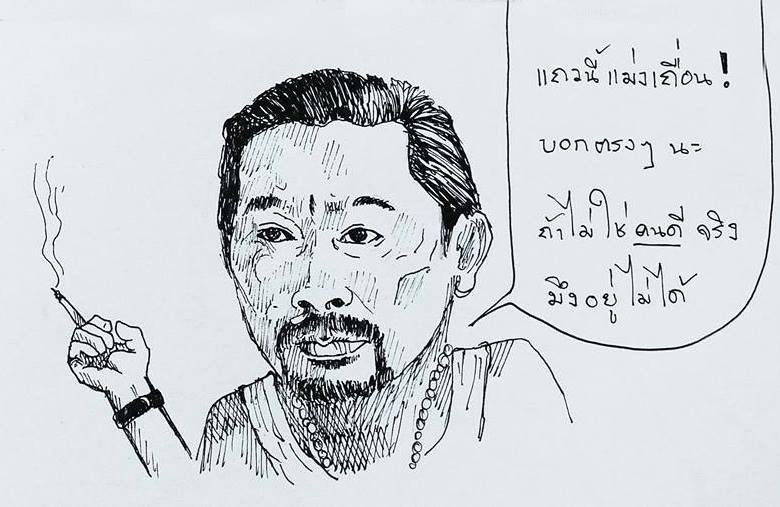 แถวนี้แม่งเถื่อน!
บอกตรงๆ นะ
ถ้าไม่ใช่คนดี จริง
มึงอยู่ไม่ได้